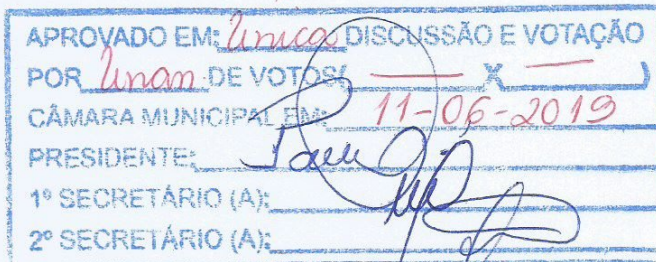 APROVADO EM: Unica DISCUSSÃO E VOTAÇÃO
POR Unan DE VOTOS( — X — )
CÂMARA MUNICIPAL EM: 11-06-2019
PRESIDENTE:
1º SECRETÁRIO (A):
2º SECRETÁRIO (A):